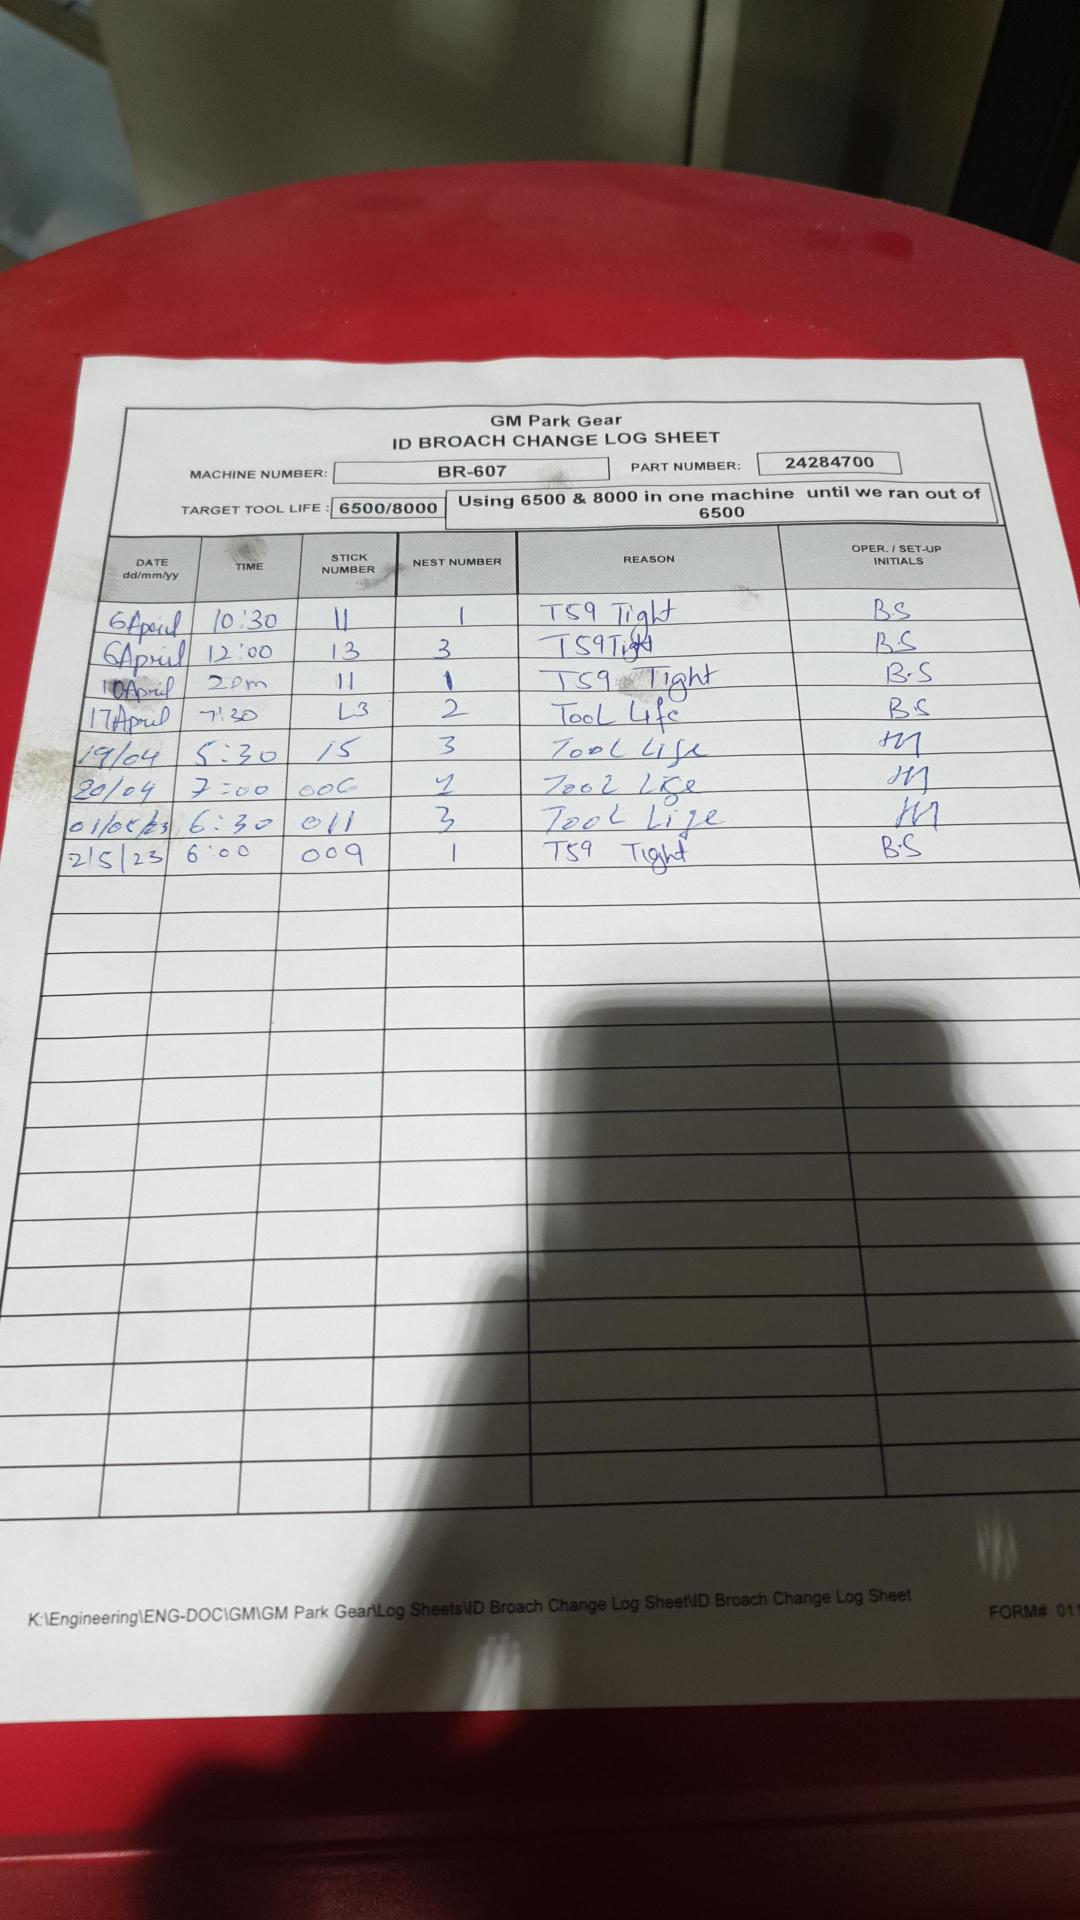 GM Park Gear
ID BROACH CHANGE LOG SHEET
MACHINE NUMBER: BR-607 PART NUMBER: 24284700
TARGET TOOL LIFE : 6500/8000 Using 6500 & 8000 in one machine until we ran out of 6500
DATE dd/mm/yy TIME STICK NUMBER NEST NUMBER REASON OPER. / SET-UP INITIALS
6 April 10:30 11 1 T59 Tight B.S
6 April 12:00 13 3 T59 Tight B.S
10 April 2pm 11 1 T59 Tight B.S
17 April 7:30 13 2 Tool Life B.S
19/04 5:30 15 3 Tool Life
20/04 7:00 006 Tool Life
01/05/23 6:30 011 3 Tool Life
2/5/23 6:00 009 1 T59 Tight B.S
K:\Engineering\ENG-DOC\GM\GM Park Gear\Log Sheets\ID Broach Change Log Sheet\ID Broach Change Log Sheet
FORM# 011